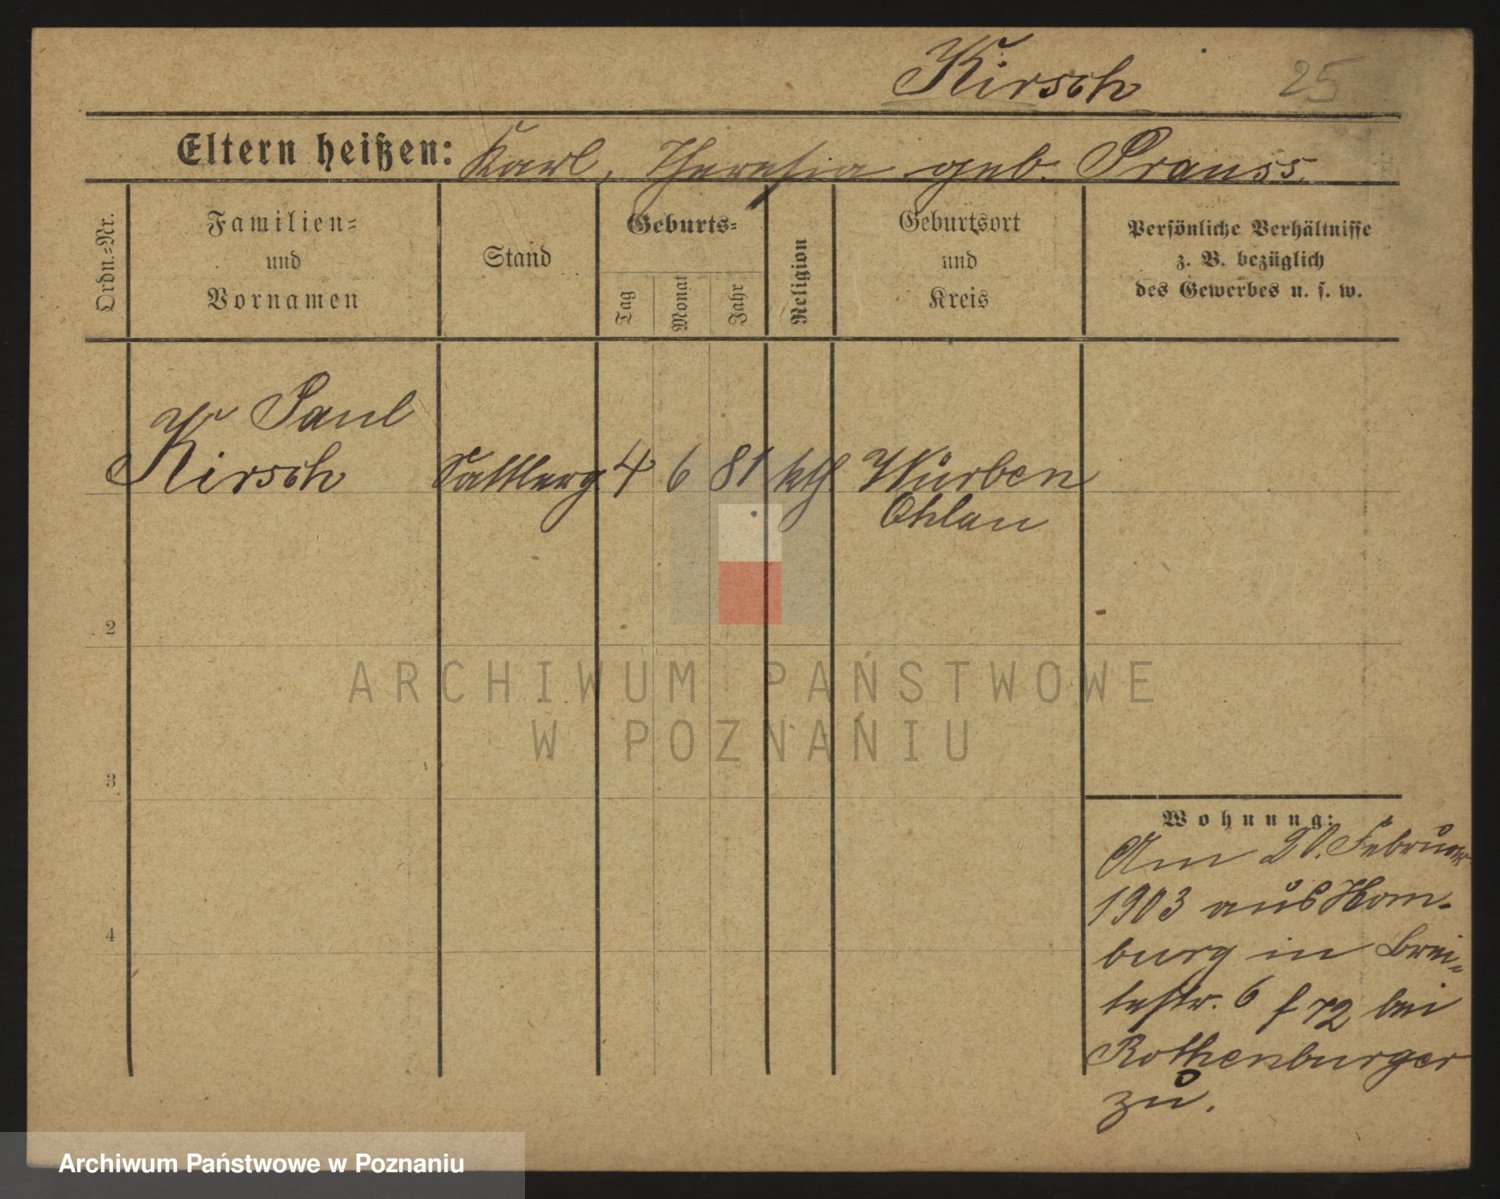 Kirsch 25
Eltern heißen: Karl, Theresia geb. Prauss.
Ordn.-Nr.
Familien-
und
Vornamen
Stand
Geburts-
Tag
Monat
Jahr
Religion
Geburtsort
und
Kreis
Persönliche Verhältnisse
z. B. bezüglich
des Gewerbes u. s. w.
Paul
Kirsch Sattlerg 4 6 81 kth Würben
Ohlau
2
3
4
Wohnung:
Am 20. Februar
1903 aus Hom-
burg in Brei-
testr. 6 f 72 bei
Rothenburger
zu.
ARCHIWUM PAŃSTWOWE
W POZNANIU
Archiwum Państwowe w Poznaniu